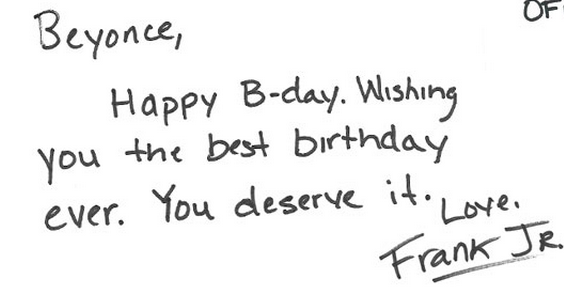 OF
Beyonce,
Happy B-day. Wishing
you the best birthday
ever. You deserve it.
Love,
Frank Jr.